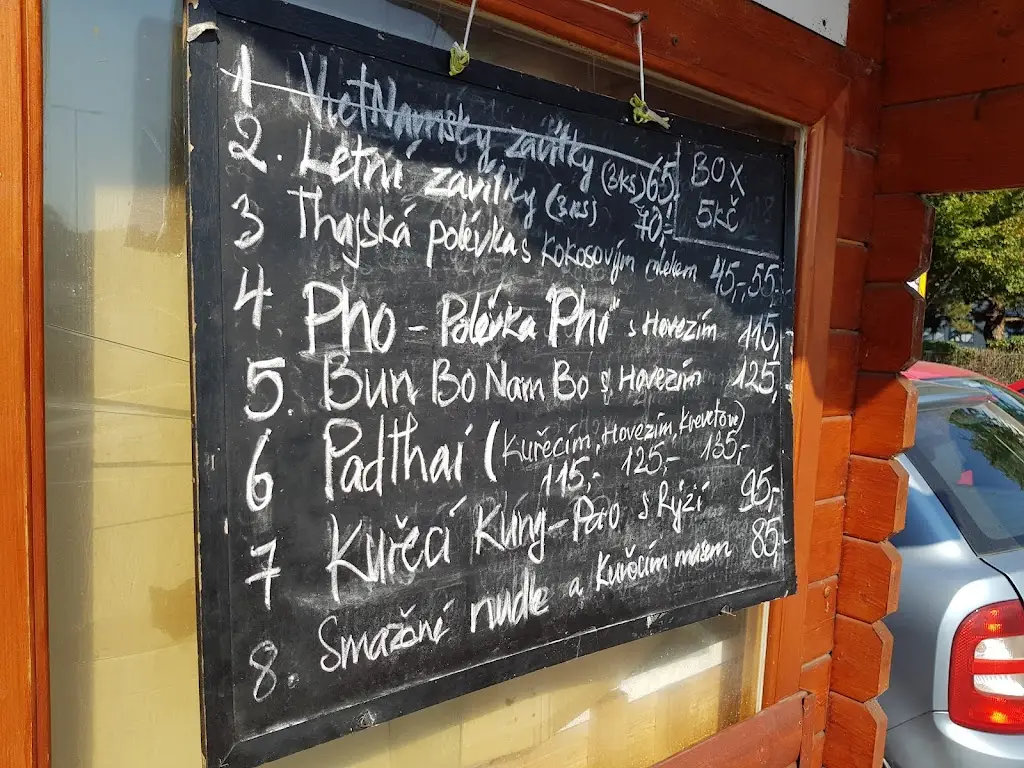 1 VietNamský závitky (3ks) 65,
2. Letní závitky (3ks) 70,-
3 Thajská polévka s kokosovým mlékem 45,- 55,-
4 Pho - Polévka "Pho" s Hovězím 115,-
5. Bun Bo Nam Bo s Hovězím 125,-
6 Padthai (Kuřecím, Hovězím, Krevetove)
115,- 125,- 135,-
7 Kuřecí Kung-Pao s Rýží 95,-
8. Smažené nudle a Kuřecím masem 85,-
BOX
5kč